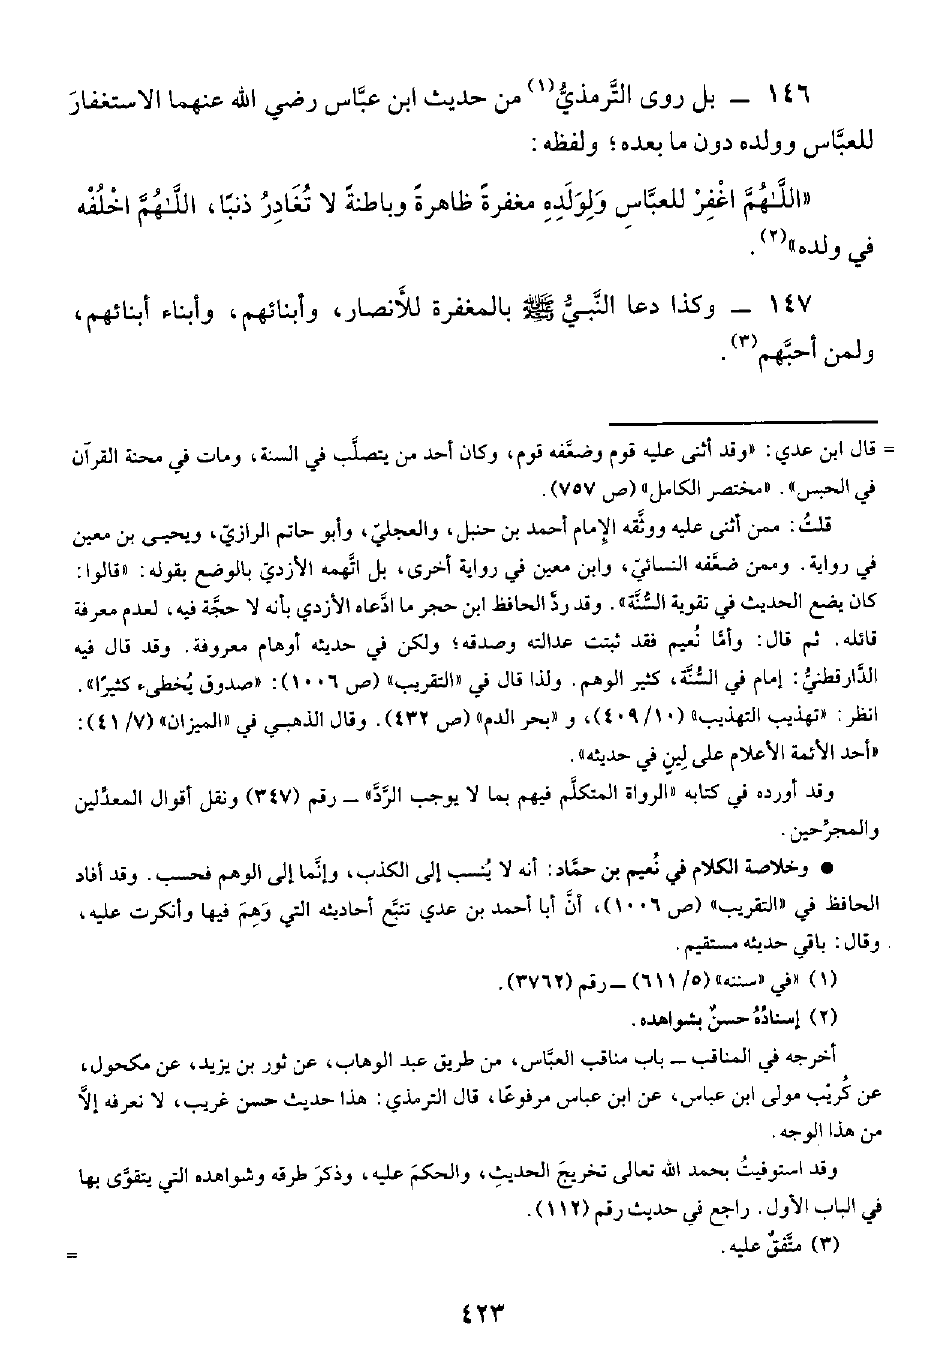 ١٤٦ ـ بل روى التَّرمذيُّ(١) من حديث ابن عبَّاس رضي الله عنهما الاستغفارَ
للعبَّاس وولده دون ما بعده؛ ولفظه:
«اللَّـٰهُمَّ اغْفِرْ للعبَّاسِ وَلِوَلَدِهِ مغفرةً ظاهرةً وباطنةً لا تُغَادِرُ ذنبًا، اللَّـٰهُمَّ اخْلُفْه
في ولده»(٢).
١٤٧ ـ وكذا دعا النَّبيُّ ﷺ بالمغفرة للأَنصار، وأبنائهم، وأبناء أبنائهم،
ولمن أحبَّهم(٣).
= قال ابن عدي: «وقد أثنى عليه قوم وضعَّفه قوم، وكان أحد من يتصلَّب في السنة، ومات في محنة القرآن
في الحبس». «مختصر الكامل» (ص ٧٥٧).
قلتُ: ممن أثنى عليه ووثَّقه الإمام أحمد بن حنبل، والعجليّ، وأبو حاتم الرازيّ، ويحيـى بن معين
في رواية. وممن ضعَّفه النسائيّ، وابن معين في رواية أخرى، بل اتَّهمه الأزديّ بالوضع بقوله: «قالوا:
كان يضع الحديث في تقوية السُّنَّة». وقد ردَّ الحافظ ابن حجر ما ادَّعاه الأزدي بأنه لا حجَّة فيه، لعدم معرفة
قائله. ثم قال: وأمَّا نُعيم فقد ثبتت عدالته وصدقه؛ ولكن في حديثه أوهام معروفة. وقد قال فيه
الدَّارقطنيُّ: إمام في السُّنَّة، كثير الوهم. ولذا قال في «التقريب» (ص ١٠٠٦): «صدوق يُخطىء كثيرًا».
انظر: «تهذيب التهذيب» (١٠/ ٤٠٩)، و «بحر الدم» (ص ٤٣٢). وقال الذهبـي في «الميزان» (٧/ ٤١):
«أحد الأئمة الأعلام على لِينٍ في حديثه».
وقد أورده في كتابه «الرواة المتكلَّم فيهم بما لا يوجب الرَّدَّ» ـ رقم (٣٤٧) ونقل أقوال المعدِّلين
والمجرِّحين.
● وخلاصة الكلام في نُعيم بن حمَّاد: أنه لا يُنسب إلى الكذب، وإنَّما إلى الوهم فحسب. وقد أفاد
الحافظ في «التقريب» (ص ١٠٠٦)، أنَّ أبا أحمد بن عدي تتبَّع أحاديثه التي وَهِمَ فيها وأنكرت عليه،
وقال: باقي حديثه مستقيم.
(١) «في «سننه» (٥/ ٦١١) ـ رقم (٣٧٦٢).
(٢) إسنادُهُ حسنٌ بشواهده.
أخرجه في المناقب ـ باب مناقب العبَّاس، من طريق عبد الوهاب، عن ثور بن يزيد، عن مكحول،
عن كُرِيْب مولى ابن عباس، عن ابن عباس مرفوعًا، قال الترمذي: هذا حديث حسن غريب، لا نعرفه إلاَّ
من هذا الوجه.
وقد استوفيتُ بحمد الله تعالى تخريجَ الحديثِ، والحكمَ عليه، وذكرَ طرقه وشواهده التي يتقوَّى بها
في الباب الأول. راجع في حديث رقم (١١٢).
(٣) متَّفقٌ عليه.
=
٤٢٣